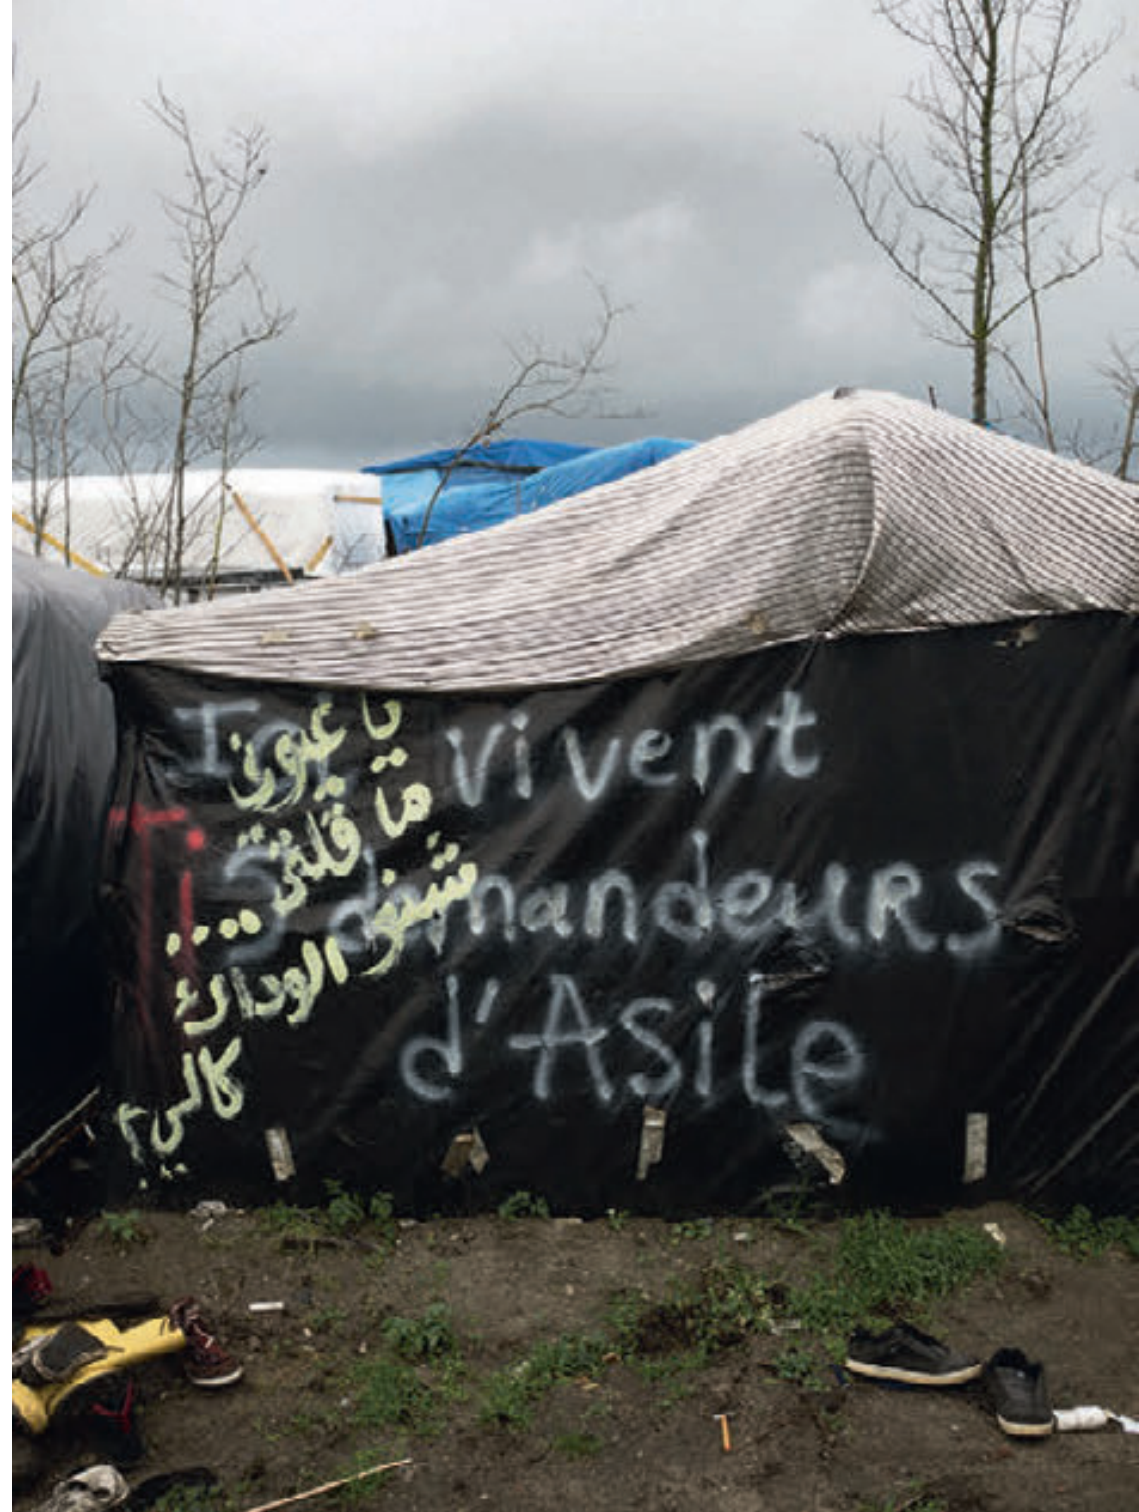 Ici vivent
5 demandeuRS
d'Asile
يا عيون
ما قلتي..
شنو الوداك
كالي؟